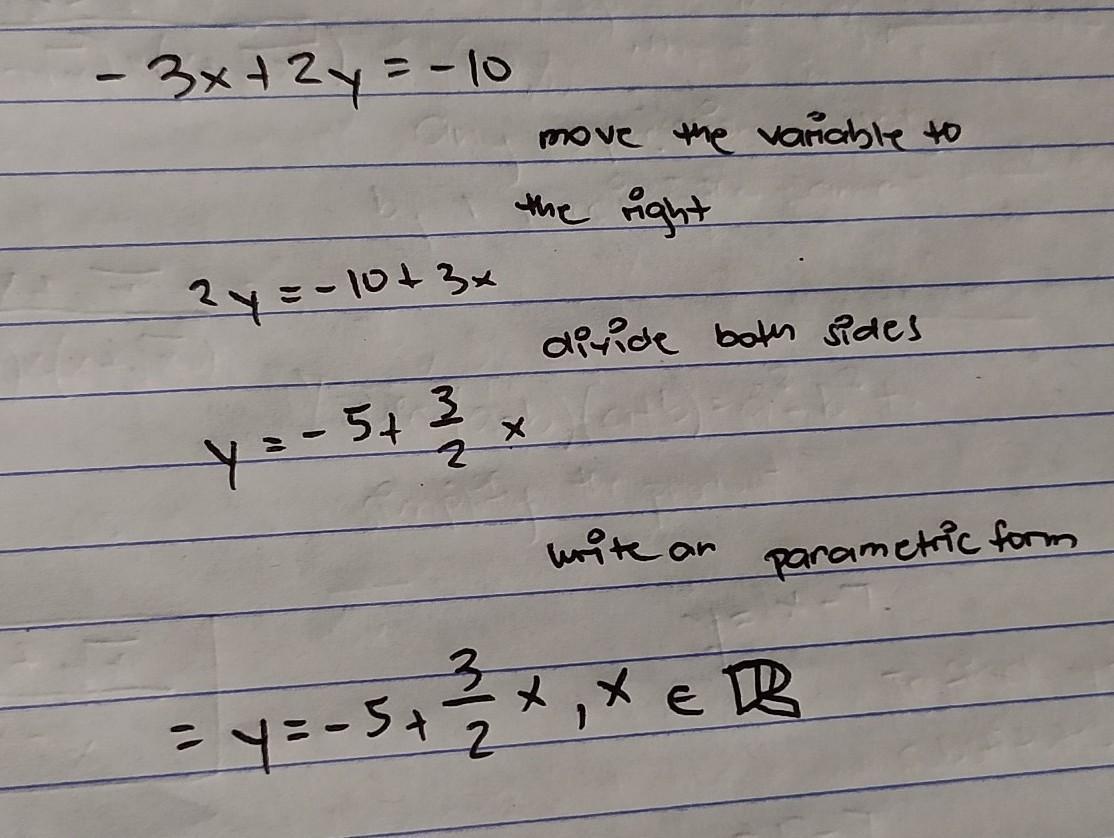 - 3x + 2y = -10
move the variable to
the right
2y = -10 + 3x
divide both sides
y = -5 + 3/2 x
write an parametric form
= y = -5 + 3/2 x, x ∈ ℝ